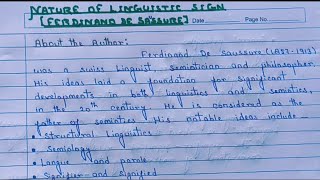 NATURE OF LINGUISTIC SIGN
[FERDINAND DE SAUSSURE]
Date
Page No
About the Author:
Ferdinand De Saussure (1857-1913)
was a swiss Linguist, semiotician and philosopher.
His ideas laid a foundation for significant
developments in both linguistics and semiotics,
in the 20th century. He is considered as the
father of semiotics. His notable ideas include
Structural Linguistics
Semiology
Langue and parole
Signifier and signified